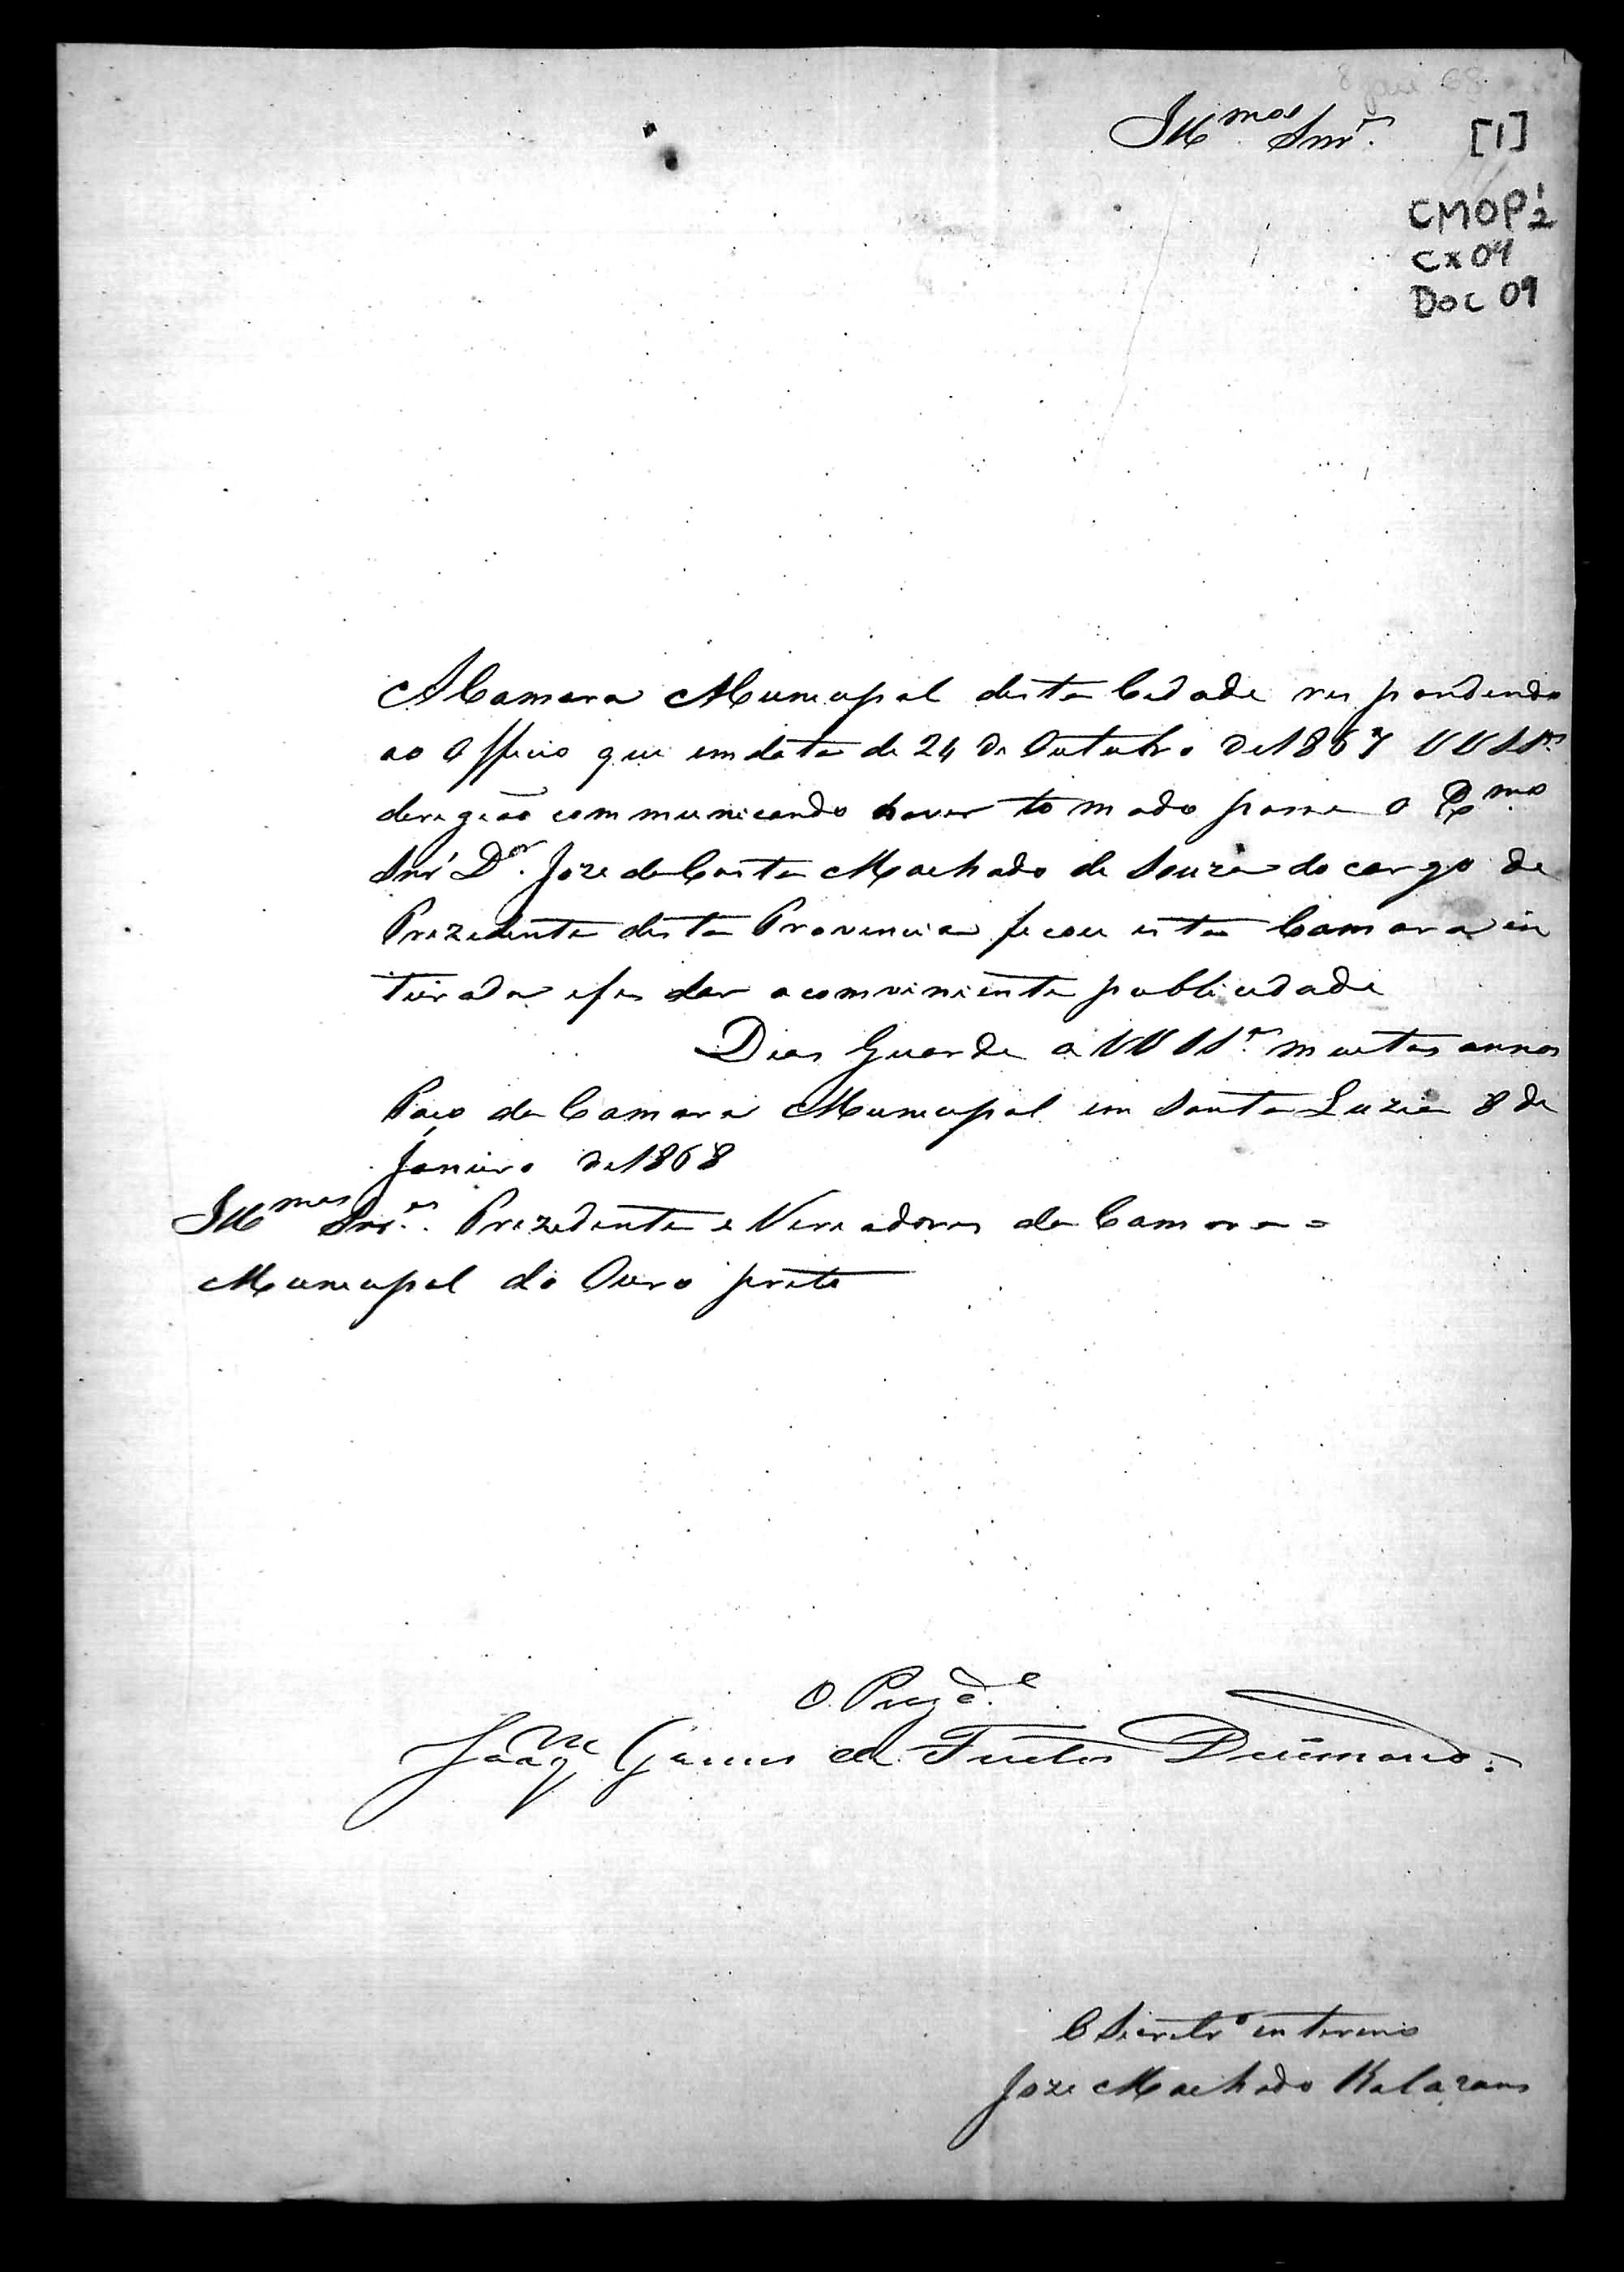 8 jan 68
Illmos Snrs.
[1]
CMOP 1/2
Cx 04
Doc 09
A Camara Municipal desta Cidade respondendo
ao Officio que em data de 24 de Outubro de 1867 VV SSas
derigirão communicando haver tomado posse o Exmo
Snr Dor. Joze da Costa Machado de Souza do cargo de
Prezidente desta Provincia ficou esta Camara in
teirada e fes dar a conviniente publicidade
Deos Guarde a VV SSas muitos annos
Paço da Camara Municipal em Santa Luzia 8 de
Janeiro de 1868
Illmos Snres. Prezidente e Veriadores da Camara =
Municipal do Ouro preto
O Prezde.
Joaqm Gomes de Freitas Drumond.
O Secretro interino
Joze Machado Kalazans